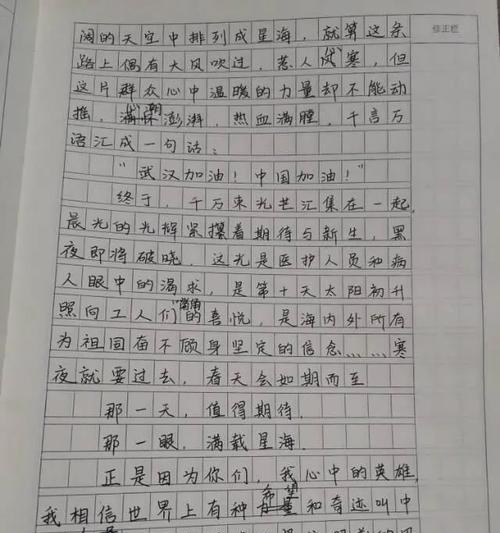 修正栏
阔的天空中排列成星海，就算这条
路上偶有大风吹过，惹人风寒，但
这片群众心中温暖的力量却不能动
摇，心潮澎湃，热血满膛，千言万
语汇成一句话：
“武汉加油！中国加油！”
终于，千万束光芒汇集在一起，
晨光的光辉紧攥着期待与新生，黑
夜即将破晓。这光是医护人员和病
人眼中的渴求，是第十天太阳初升
照向工人们嘴角的喜悦，是海内外所有
为祖国奋不顾身坚定的信念……寒
夜就要过去，春天会如期而至
那一天，值得期待.
那一眼，满载星海.
正是因为你们，我心中的英雄，
我相信世界上有种希望和奇迹叫中